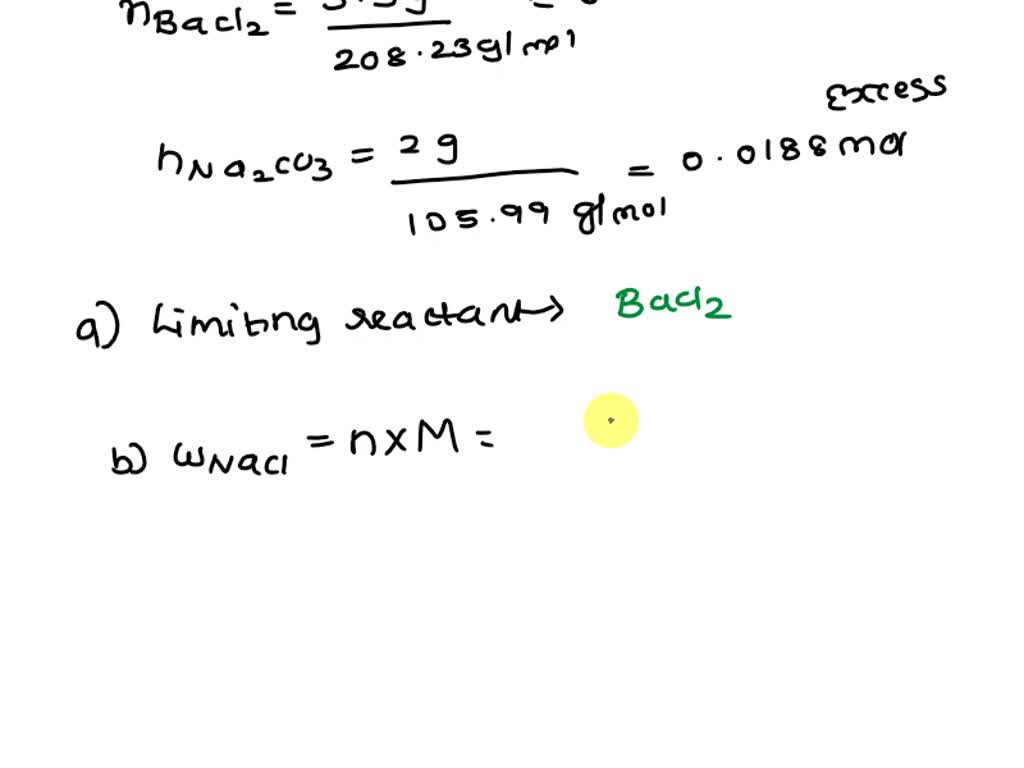 nBaCl2 =
208.23 g/mol
Excess
nNa2CO3 = 2 g / 105.99 g/mol = 0.0188 mol
a) Limiting reactant → BaCl2
b) wNaCl = n x M =